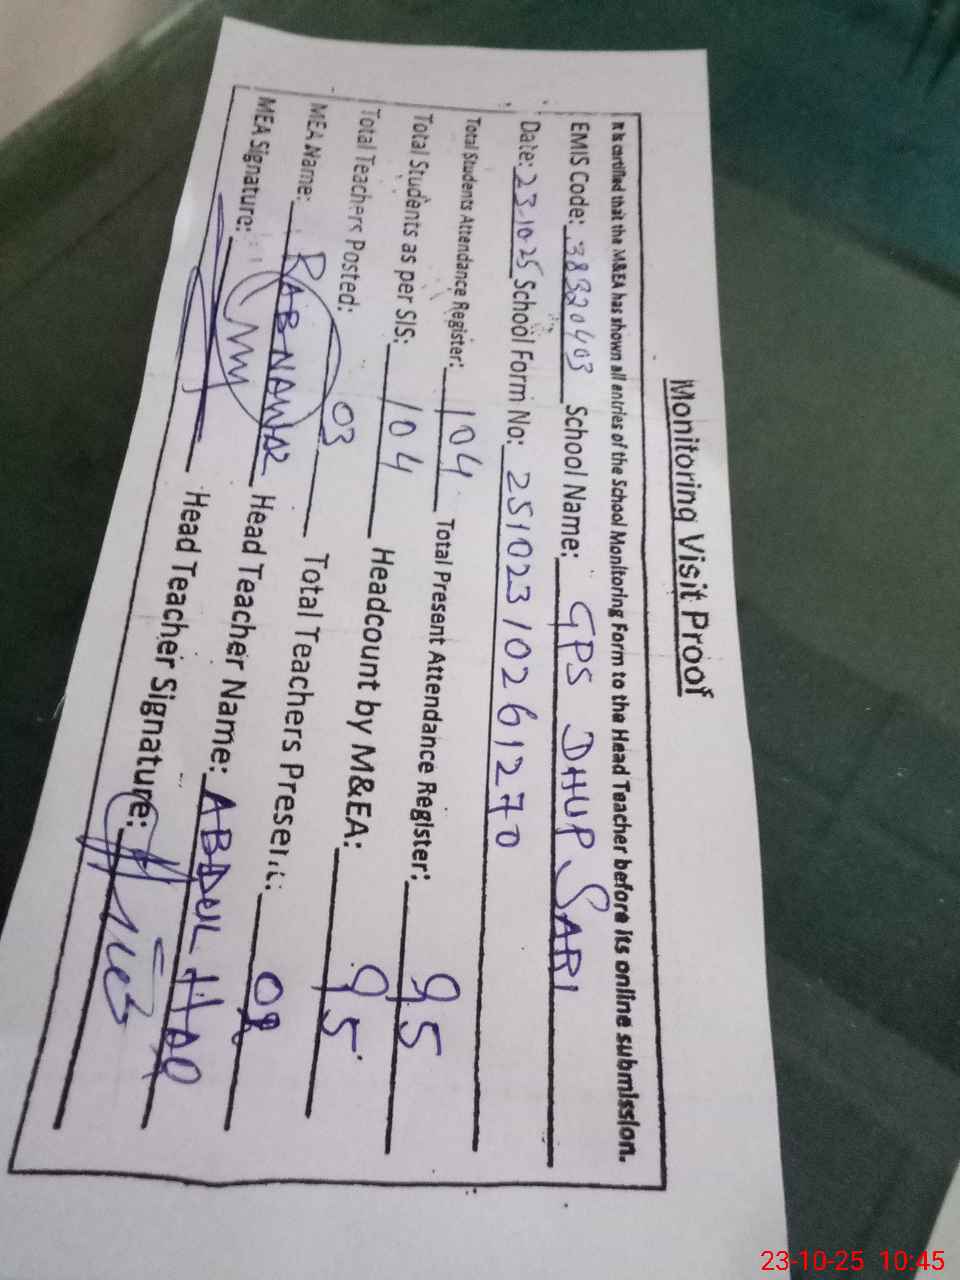 Monitoring Visit Proof
It is certified that the M&EA has shown all entries of the School Monitoring Form to the Head Teacher before its online submission.
EMIS Code: 38320403 School Name: GPS DHUP SARI
Date: 23-10-25 School Form No: 25102310261270
Total Students Attendance Register: 104 Total Present Attendance Register: 95
Total Students as per SIS: 104 Headcount by M&EA: 95
Total Teachers Posted: 03 Total Teachers Present:
MEA Name: RAB NAWAZ Head Teacher Name: ABDUL HAQ
MEA Signature: Head Teacher Signature:
23-10-25 10:45